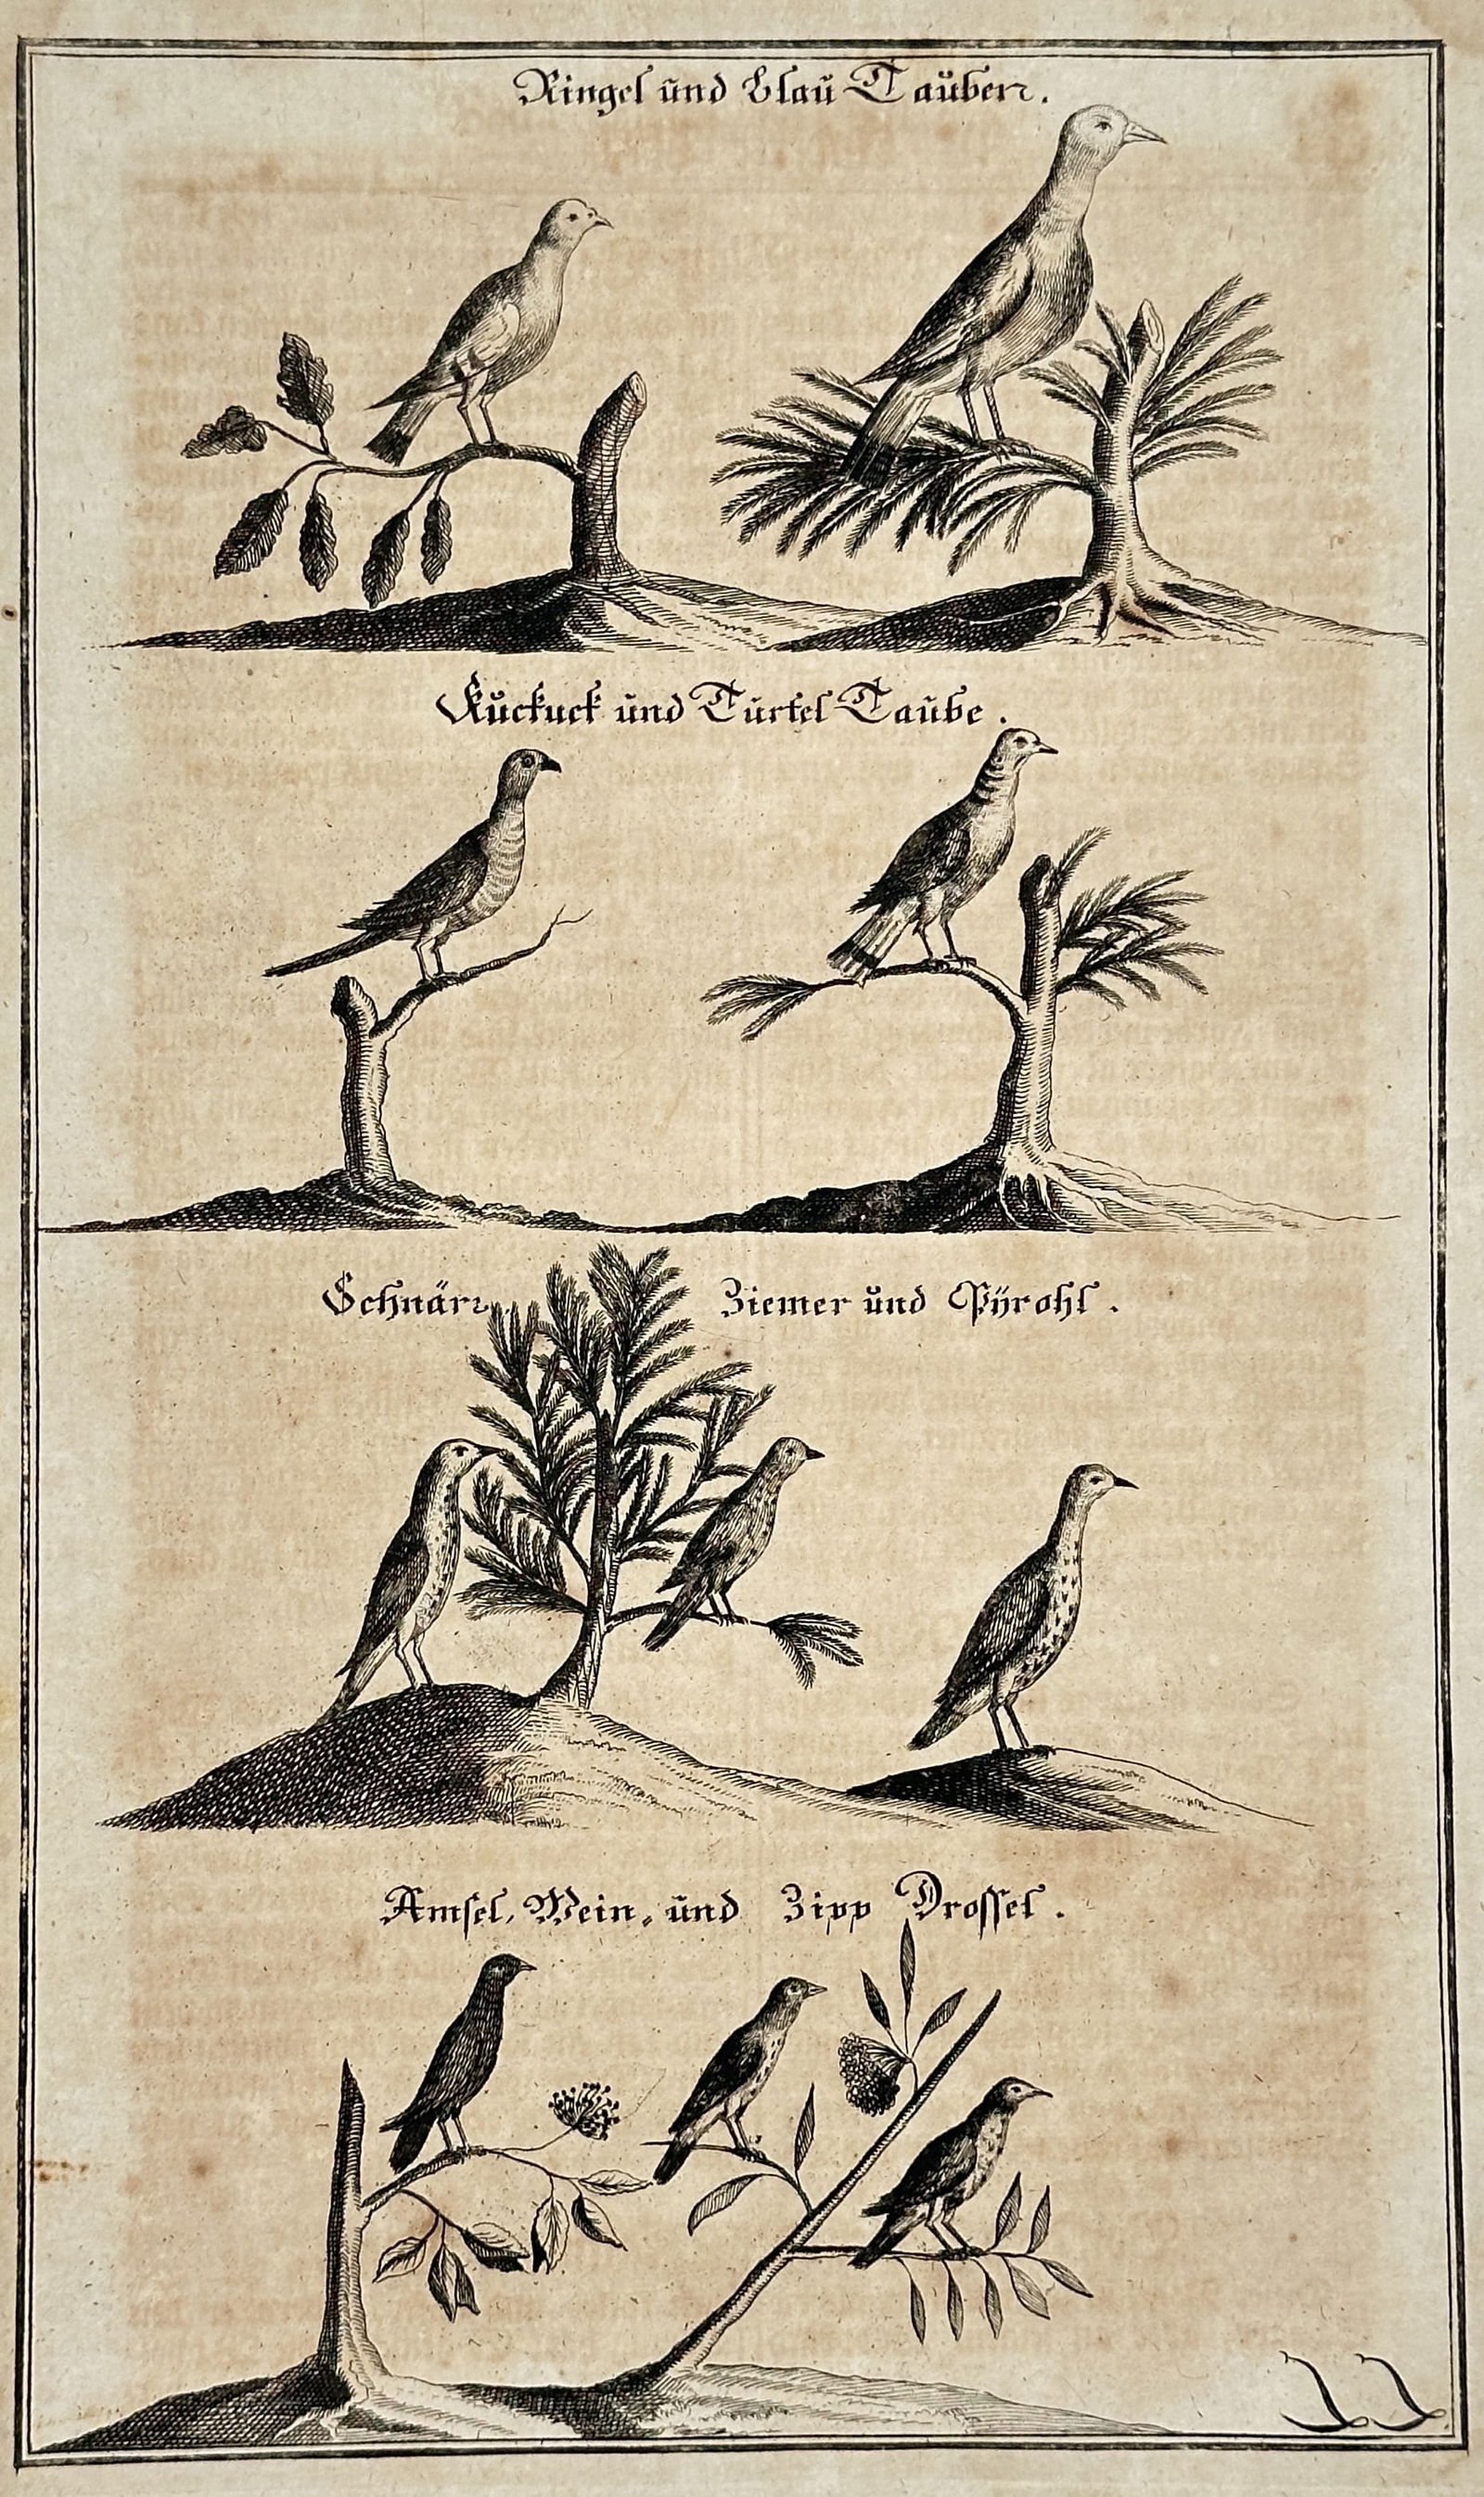 Ringel und blau Tauben.
Kuckuck und Turtel Taube.
Schnärr, Ziemer und Pÿrohl.
Amsel, Wein, und Zipp Drossel.